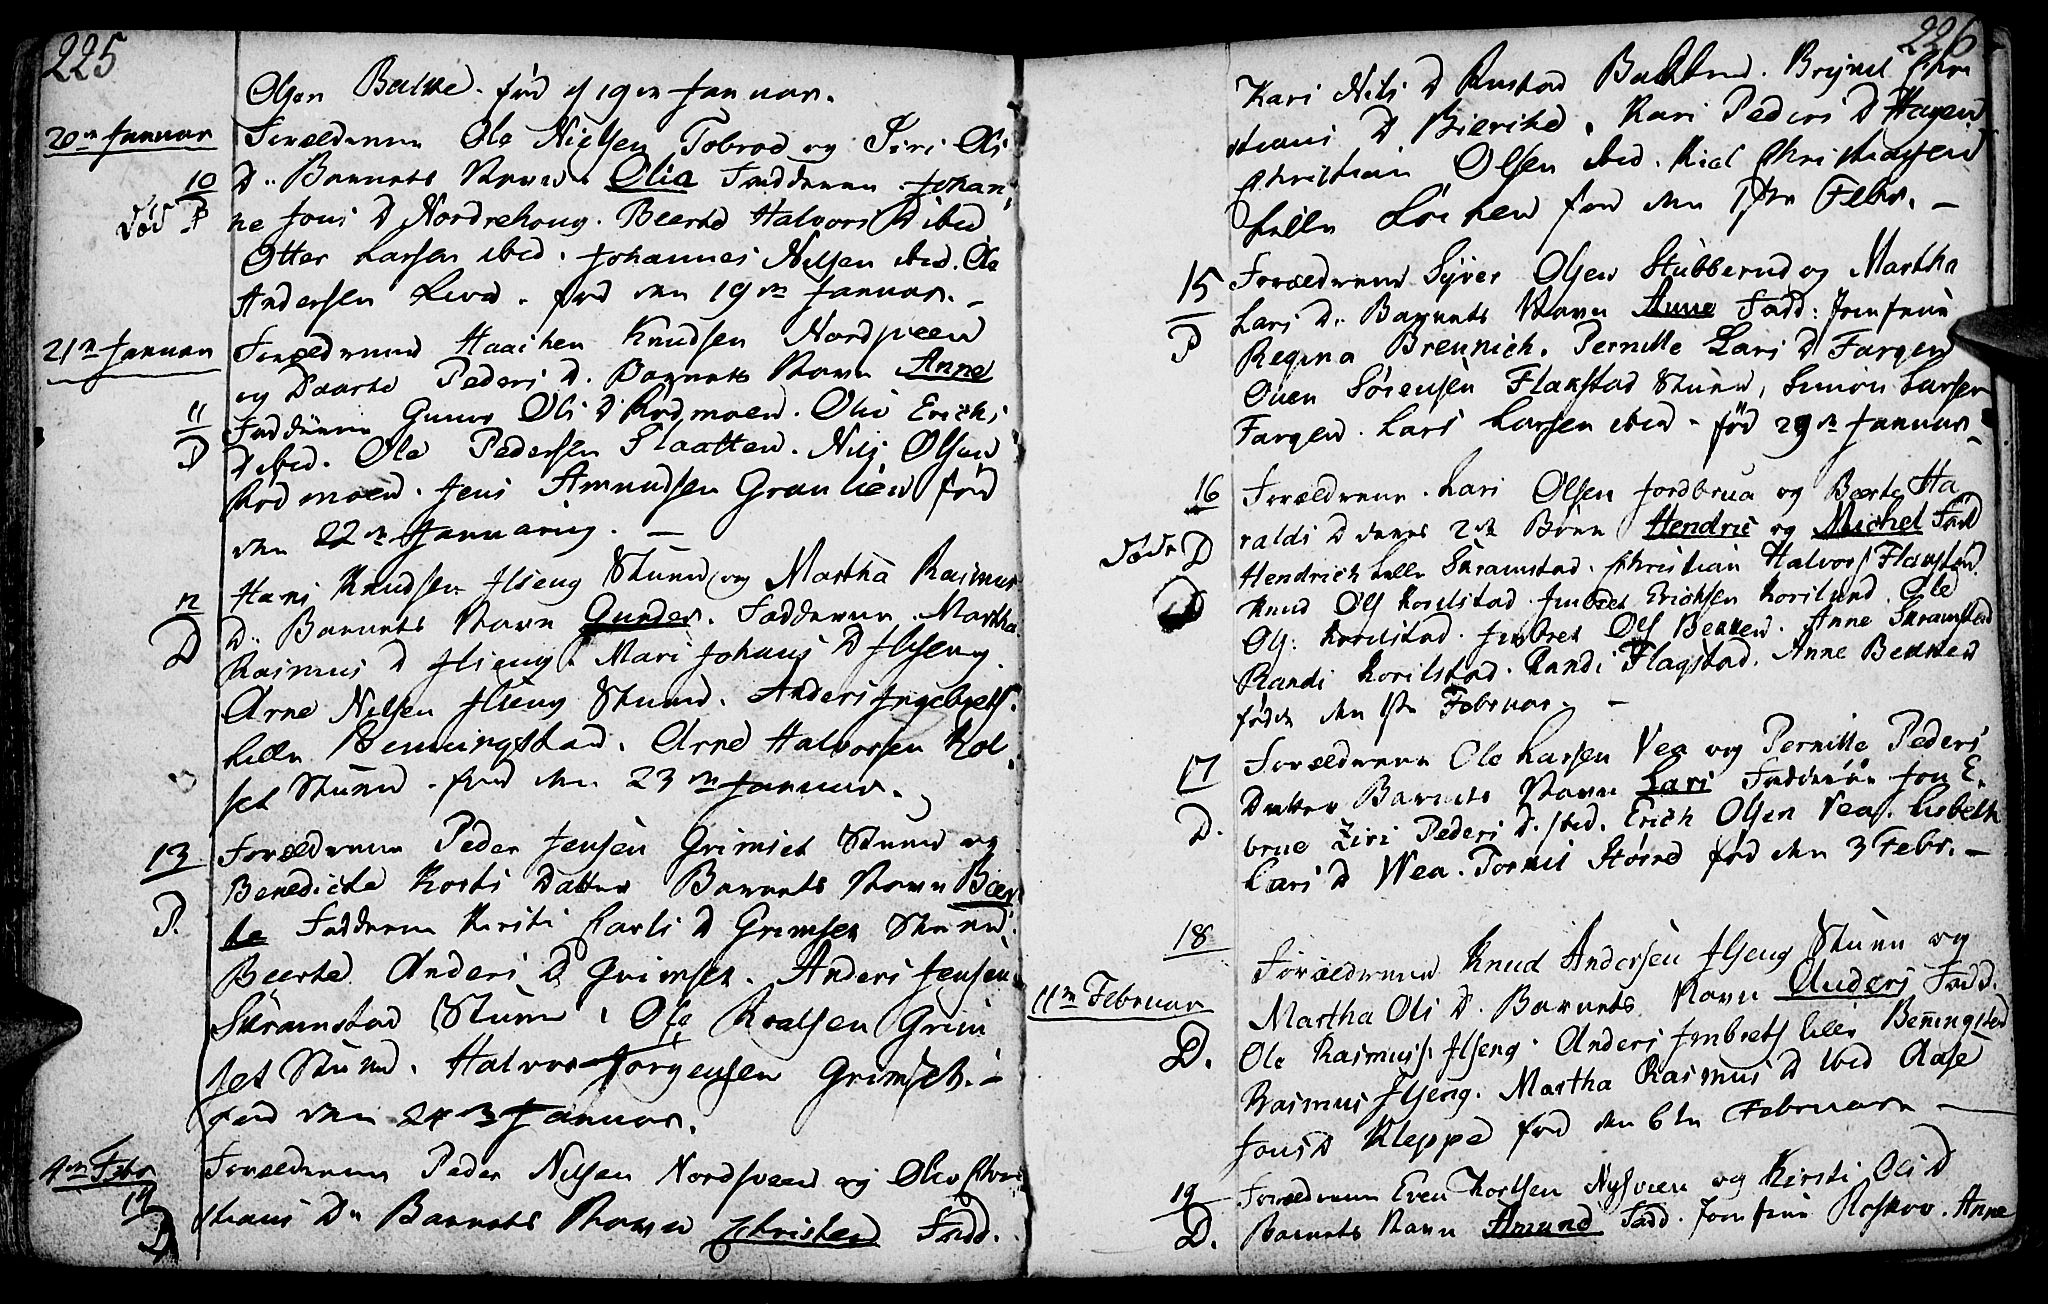 225
Olsen Balke. fød d 19de Januar.
20de Januar
Forældrene Ole Nielsen Tobrod og Siri Ols
10
D. Barnets Navn. Olia Fadderne. Johan
død D
ne Jons D Nordrehoug. Beerte Halvors D ibid
Otter Larsen ibid. Johannes Nilsen ibid. Ole
Andersen Lund. fød den 19de Januar. -
21de Januar
Forældrene Haachen Knudsen Nordsveen
og Daarte Peders D. Barnets Navn Anne
11
Fadderne Gunor Ols D Rodmoen. Oliv Erichs
D
D ibid. Ole Pedersen Slaatten. Nils Olsen
Rodmoen. Jens Amundsen Granlien fød
den 22de Januarius. -
Hans Knudsen Ilseng Stuen og Martha Rasmus
12
D. Barnets Navn Gunder. Fadderne. Martha
D
Rasmus D Ilseng. Mari Johans D Ilseng.
Arne Nilsen Ilseng Stuen. Anders Ingebrets.
Lille Benningstad. Arne Halvorsen Kol
set Stuen. fød den 23de Januar.
13
Forældrene Peder Jensen Grimset Stuen og
Benedicte Karls Datter Barnets Navn Beer
D.
te Fadderne Kirsti Carls D Grimset Stuen
Beerte Anders D Grimset. Anders Jensen
Skramstad Stuen. Ole Roalsen Grim
set Stuen. Halvor Jorgensen Grimset. -
fød den 24de Januar.
4de Febr
Forældrene Peder Nilsen Nordsveen og Oliv Chri
14
D
stians D. Barnets Navn Christen Fadd.
226
Kari Nils D Rustad Bakken. Brynil Chri
stians D Bierke. Kari Peders D Hagen
Christian Olsen ibid. Kiel Christiansen
Lille Løcken fød den 1ste Febr. -
15
Forældrene Syver Olsen Stubberud og Martha
Lars D. Barnets Navn Anne Fadd: Jomfrue
D
Regina Breunich. Pernille Lars D Fargen
Ouen Sörensen Flakstad Stuen, Simon Larsen
Fargen. Lars Larsen ibid. fød 29de Januar.
16
Forældrene. Lars Olsen Jordbrua og Beerte Ha
døde D
raldi D deres 2de Børn Hendric og Michel Fadd
Hendrich Lille Skramstad. Christian Halvors Flakstad.
D
Knud Ols Korilstad. Jmbret Erichsen Korslund. Ole
Ols: Korilstad. Jmbret Ols Bekken. Anne Skramstad
Randi Korilstad. Randi Flagstad. Anne Bekken
fødde den 1ste Februar. -
17
Forældrene Ole Larsen Vea og Pernille Peders
Datter Barnets Navn Lars Fadderne Jon E.
D.
brue Ziri Peders D. ibid. Erich Olsen Vea. Lisbeth
Lars D Vea. Tormil Störed fød den 3 Febr. -
18
Forældrene Knud Andersen Ilseng Stuen og
11de Februar
Martha Ols D. Barnets Navn Anders Fadd.
D.
Ole Rasmuss. Ilseng. Anders Jmbrets Lille Benningstad
Rasmus Ilseng. Martha Rasmus D ibid Aase
Jons D Kleppe fød den 6te Februar -
19
Forældrene Even Karlsen Nysveen og Kirsti Ols D
D.
Barnets Navn Amund Fadd. Jomfrue Roskov. Anne